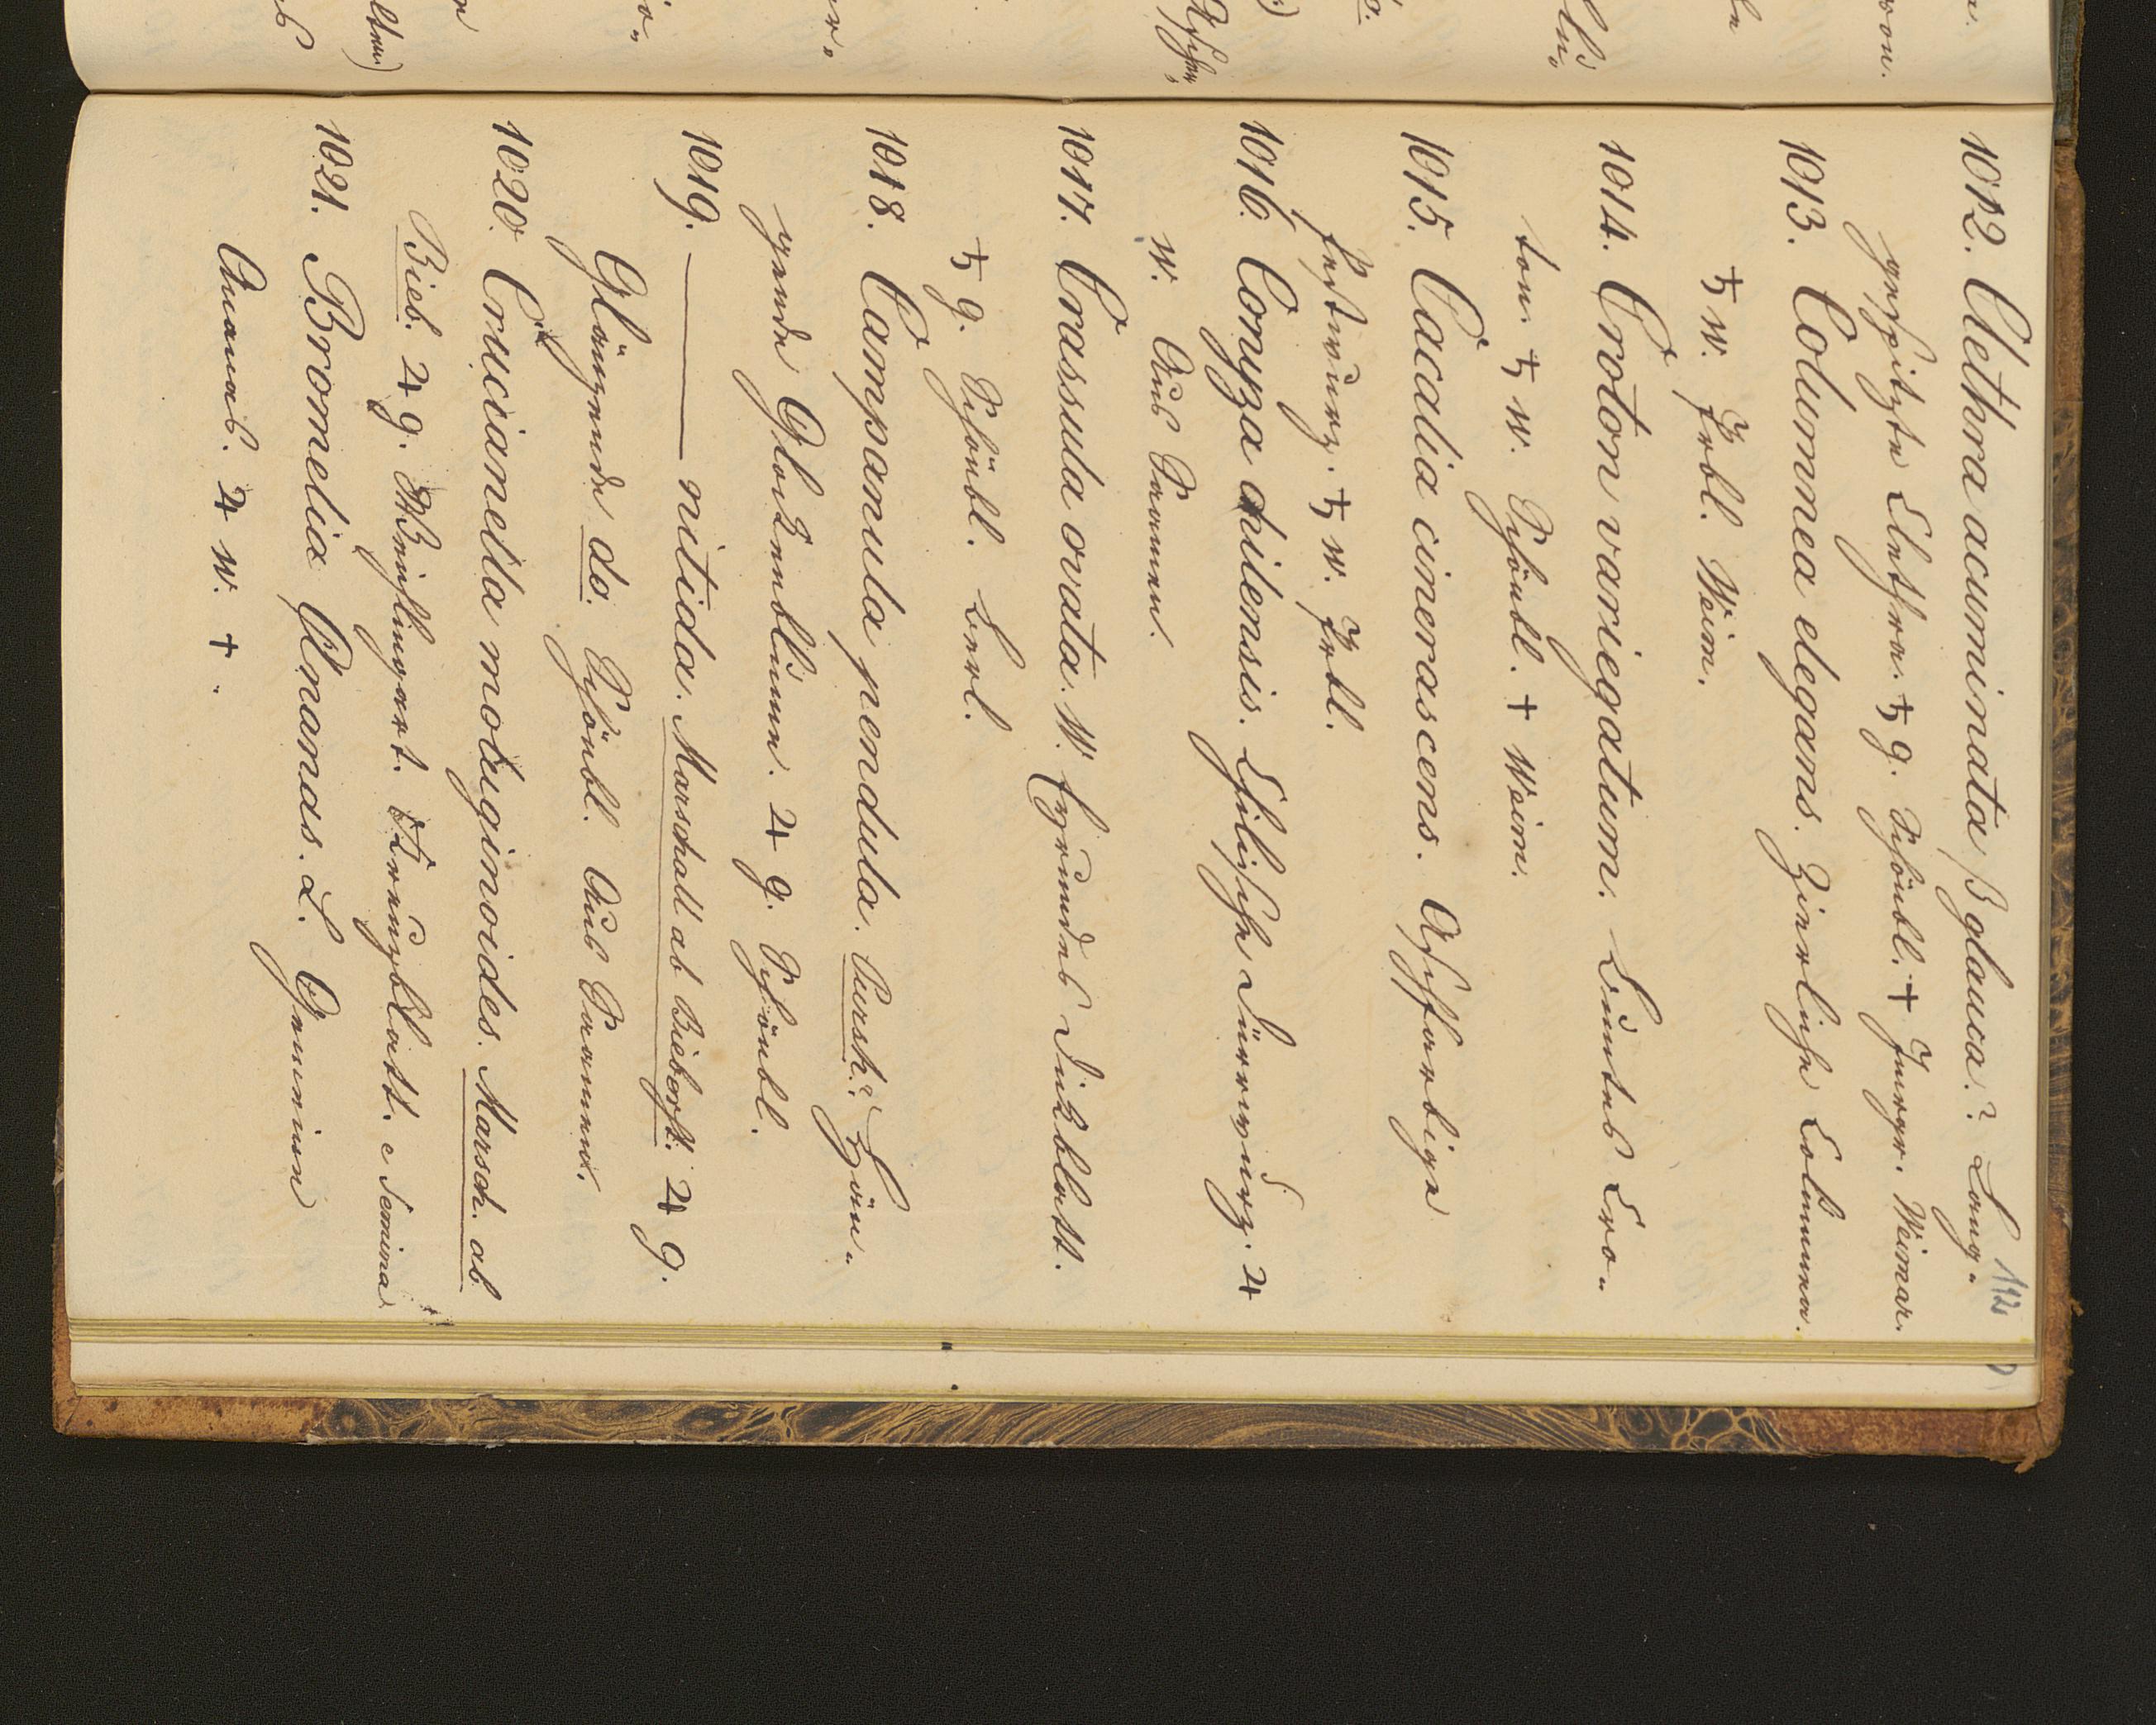 112
1012. Clethra acuminata β glauca? Lang-
gespitzte Clethra. ♄ g. Schönbl. + Jungr. Weimar.
1013. Columnea elegans. Zierliche Columnea.
♄ w. Frbl. Weim.
1014. Croton variegatum. Buntes Cro-
ton. ♄ w. Schönbl. + Weim.
1015. Cacalia cinerascens. Aschfarbige
Pestwurz. ♄ w. Frbl.
1016. Conyza chilensis. Chilische Dürrwurz. ♃
w. Aus Saamen.
1017. Crassula ovata. W. Eyrundes Dickblatt.
♄ g. Schönbl. Berl.
1018. Campanula pendula. Pursh? Hän-
gende Glockenblume. ♃ g. Schönbl.
1019. —— nitida. Marschall ab Bieberst. ♃ g.
Glänzende do. Schönbl. Aus Saamen.
1020. Crucianella molluginoides. Marsch. ab
Bieb. ♃ g. Kreuzblatt. e Semina
1021. Bromelia Ananas. L. Gemeine
Ananas. ♃ w. +.